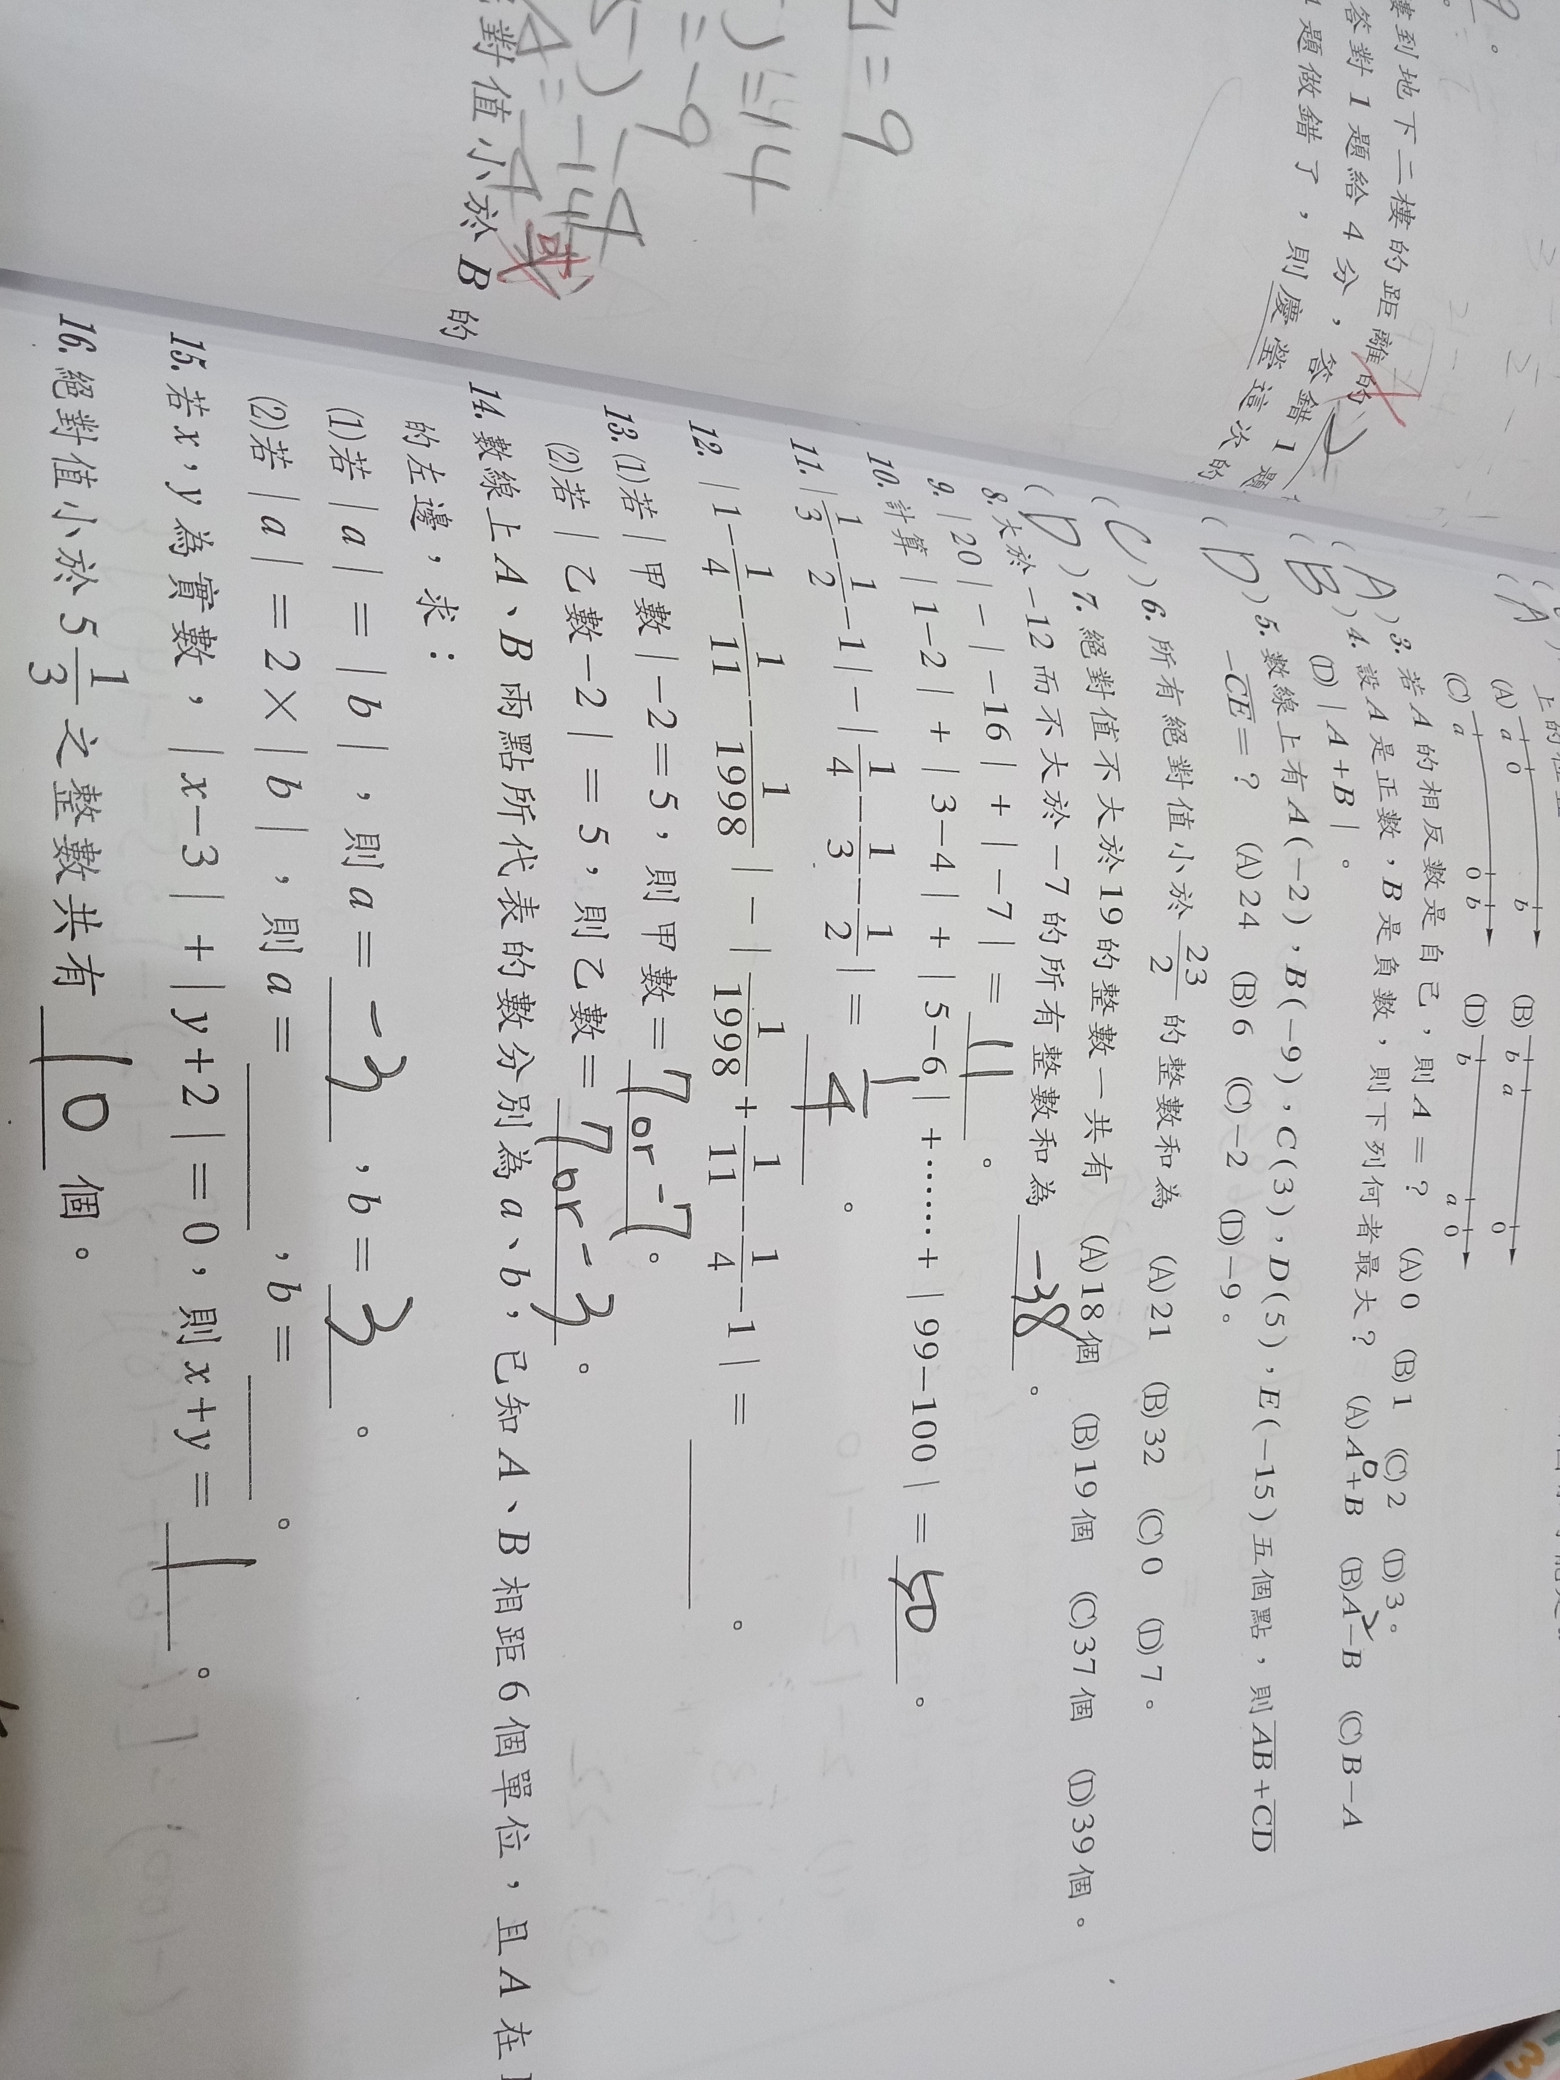 9。
樓到地下二樓的距離的
答對1題給4分，答錯1題
1題做錯了，則慶瑩這次的
=9
)=14
=-9
-9
4=-14
或
對值小於B的
上的位置
(A) a 0 b (B) b a 0
(C) a 0 b (D) b a 0
(A)3.若A的相反數是自己，則A=？ (A)0 (B)1 (C)2 (D)3。
(B)4.設A是正數，B是負數，則下列何者最大？ (A)A+B (B)A-B (C)B-A
0 2
(D)|A+B|。
(D)5.數線上有A(-2)，B(-9)，C(3)，D(5)，E(-15)五個點，則AB+CD
-CE=？ (A)24 (B)6 (C)-2 (D)-9。
(C)6.所有絕對值小於23/2的整數和為 (A)21 (B)32 (C)0 (D)7。
(D)7.絕對值不大於19的整數一共有 (A)18個 (B)19個 (C)37個 (D)39個。
8.大於-12而不大於-7的所有整數和為 -38 。
9.|20|-|-16|+|-7|= 11 。
10.計算|1-2|+|3-4|+|5-6|+……+|99-100|= 50 。
11.|1/3-1/2-1|-|1/4-1/3-1/2|= 1/4 。
12.|1-1/4-1/11-1/1998|-|1/1998+1/11-1/4-1|= 。
13.(1)若|甲數|-2=5，則甲數= 7 or -7 。
(2)若|乙數-2|=5，則乙數= 7 or -3 。
14.數線上A、B兩點所代表的數分別為a、b，已知A、B相距6個單位，且A在
的左邊，求：
(1)若|a|=|b|，則a= -3 ，b= 3 。
(2)若|a|=2×|b|，則a= ，b= 。
15.若x，y為實數，|x-3|+|y+2|=0，則x+y= 1 。
16.絕對值小於5 1/3之整數共有 10 個。